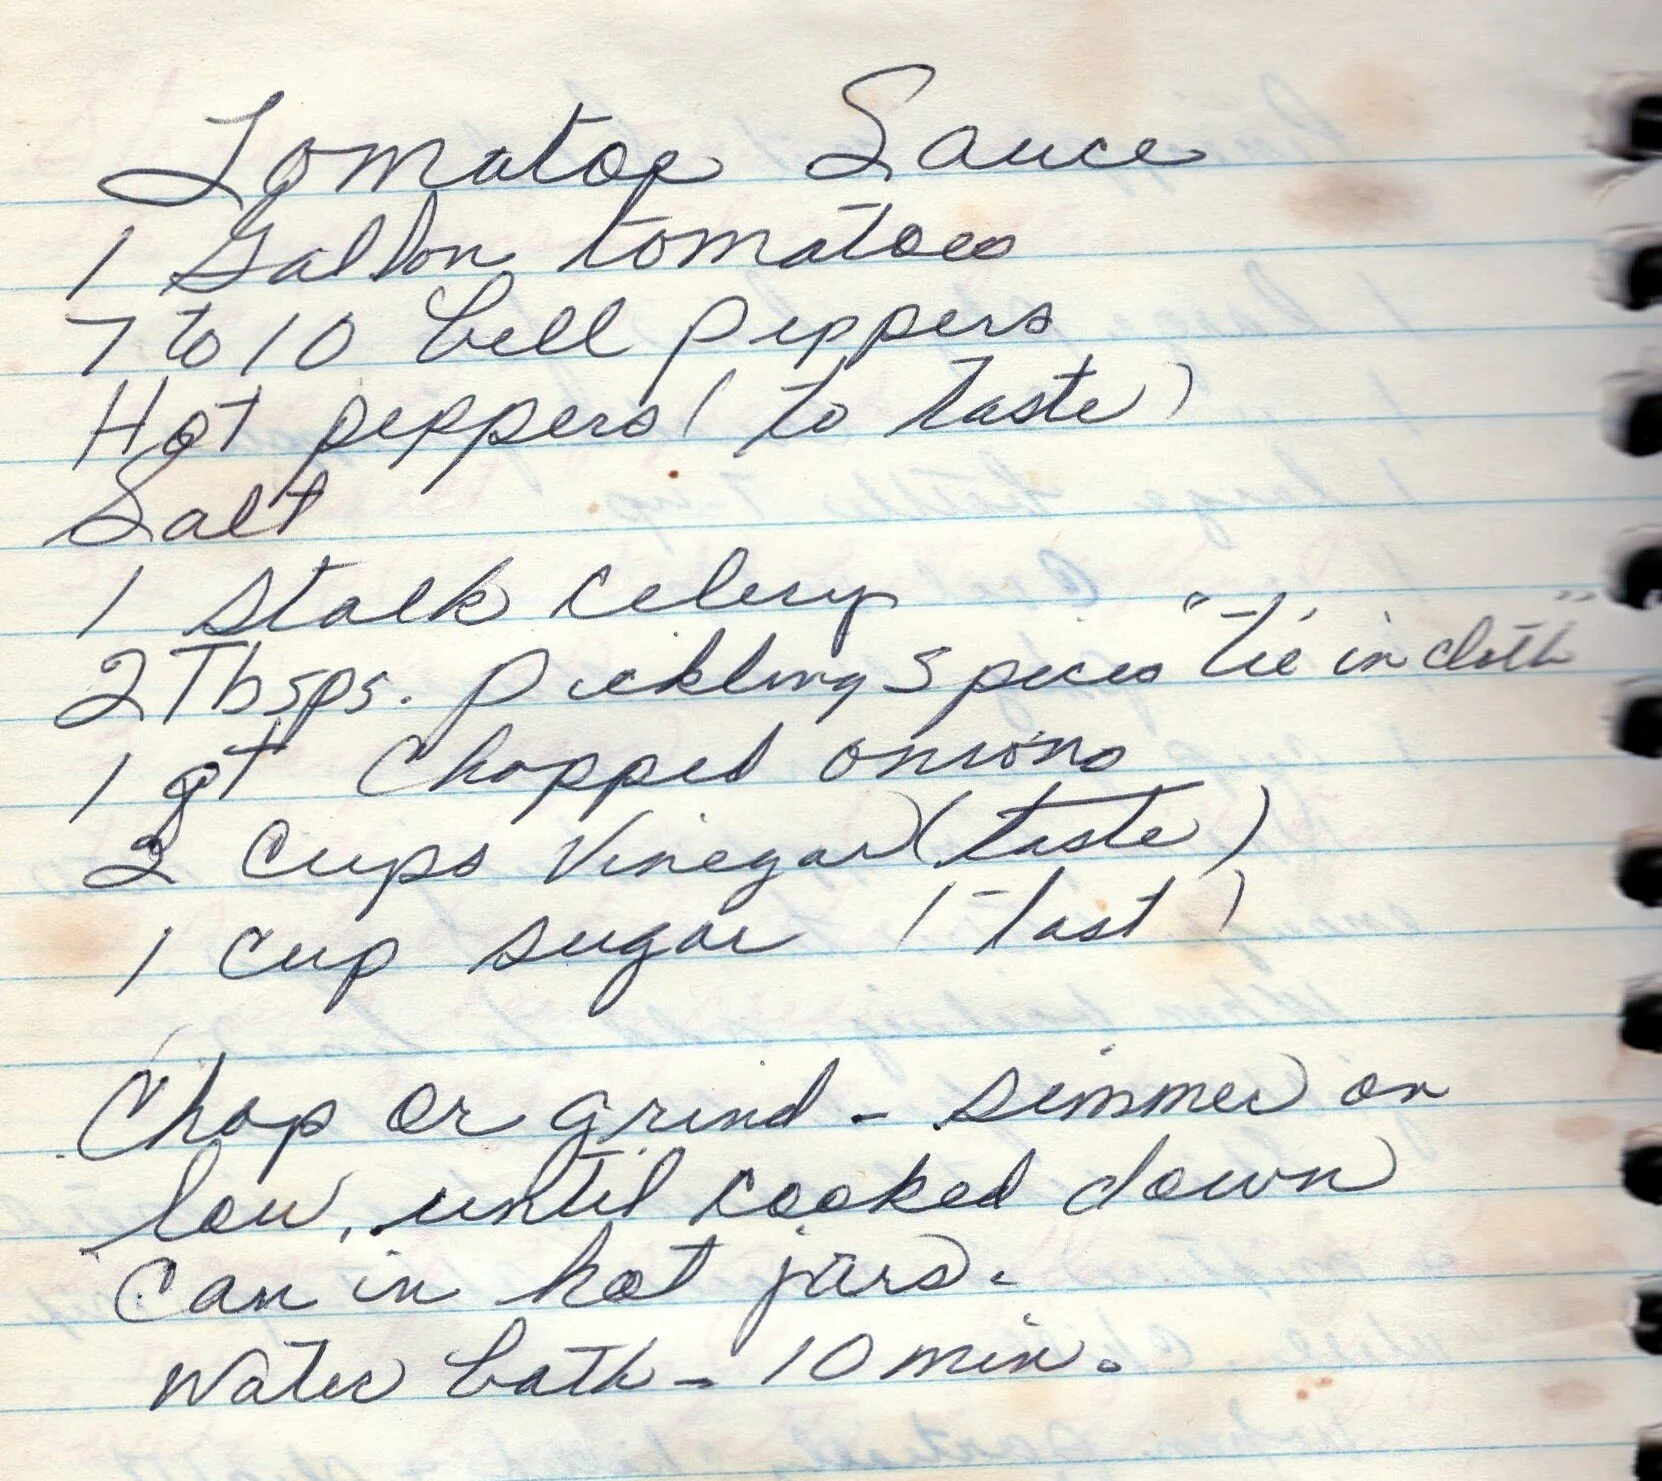 Tomatoe Sauce
1 Gallon tomatoes
7 to 10 bell peppers
Hot peppers ( to taste )
Salt
1 stalk celery
2 Tbsps. pickling spices "tie in cloth"
1 qt chopped onions
2 cups vinegar ( taste )
1 cup sugar ( tast )
Chop or grind - simmer on
low, until cooked down
Can in hot jars.
Water bath - 10 min.